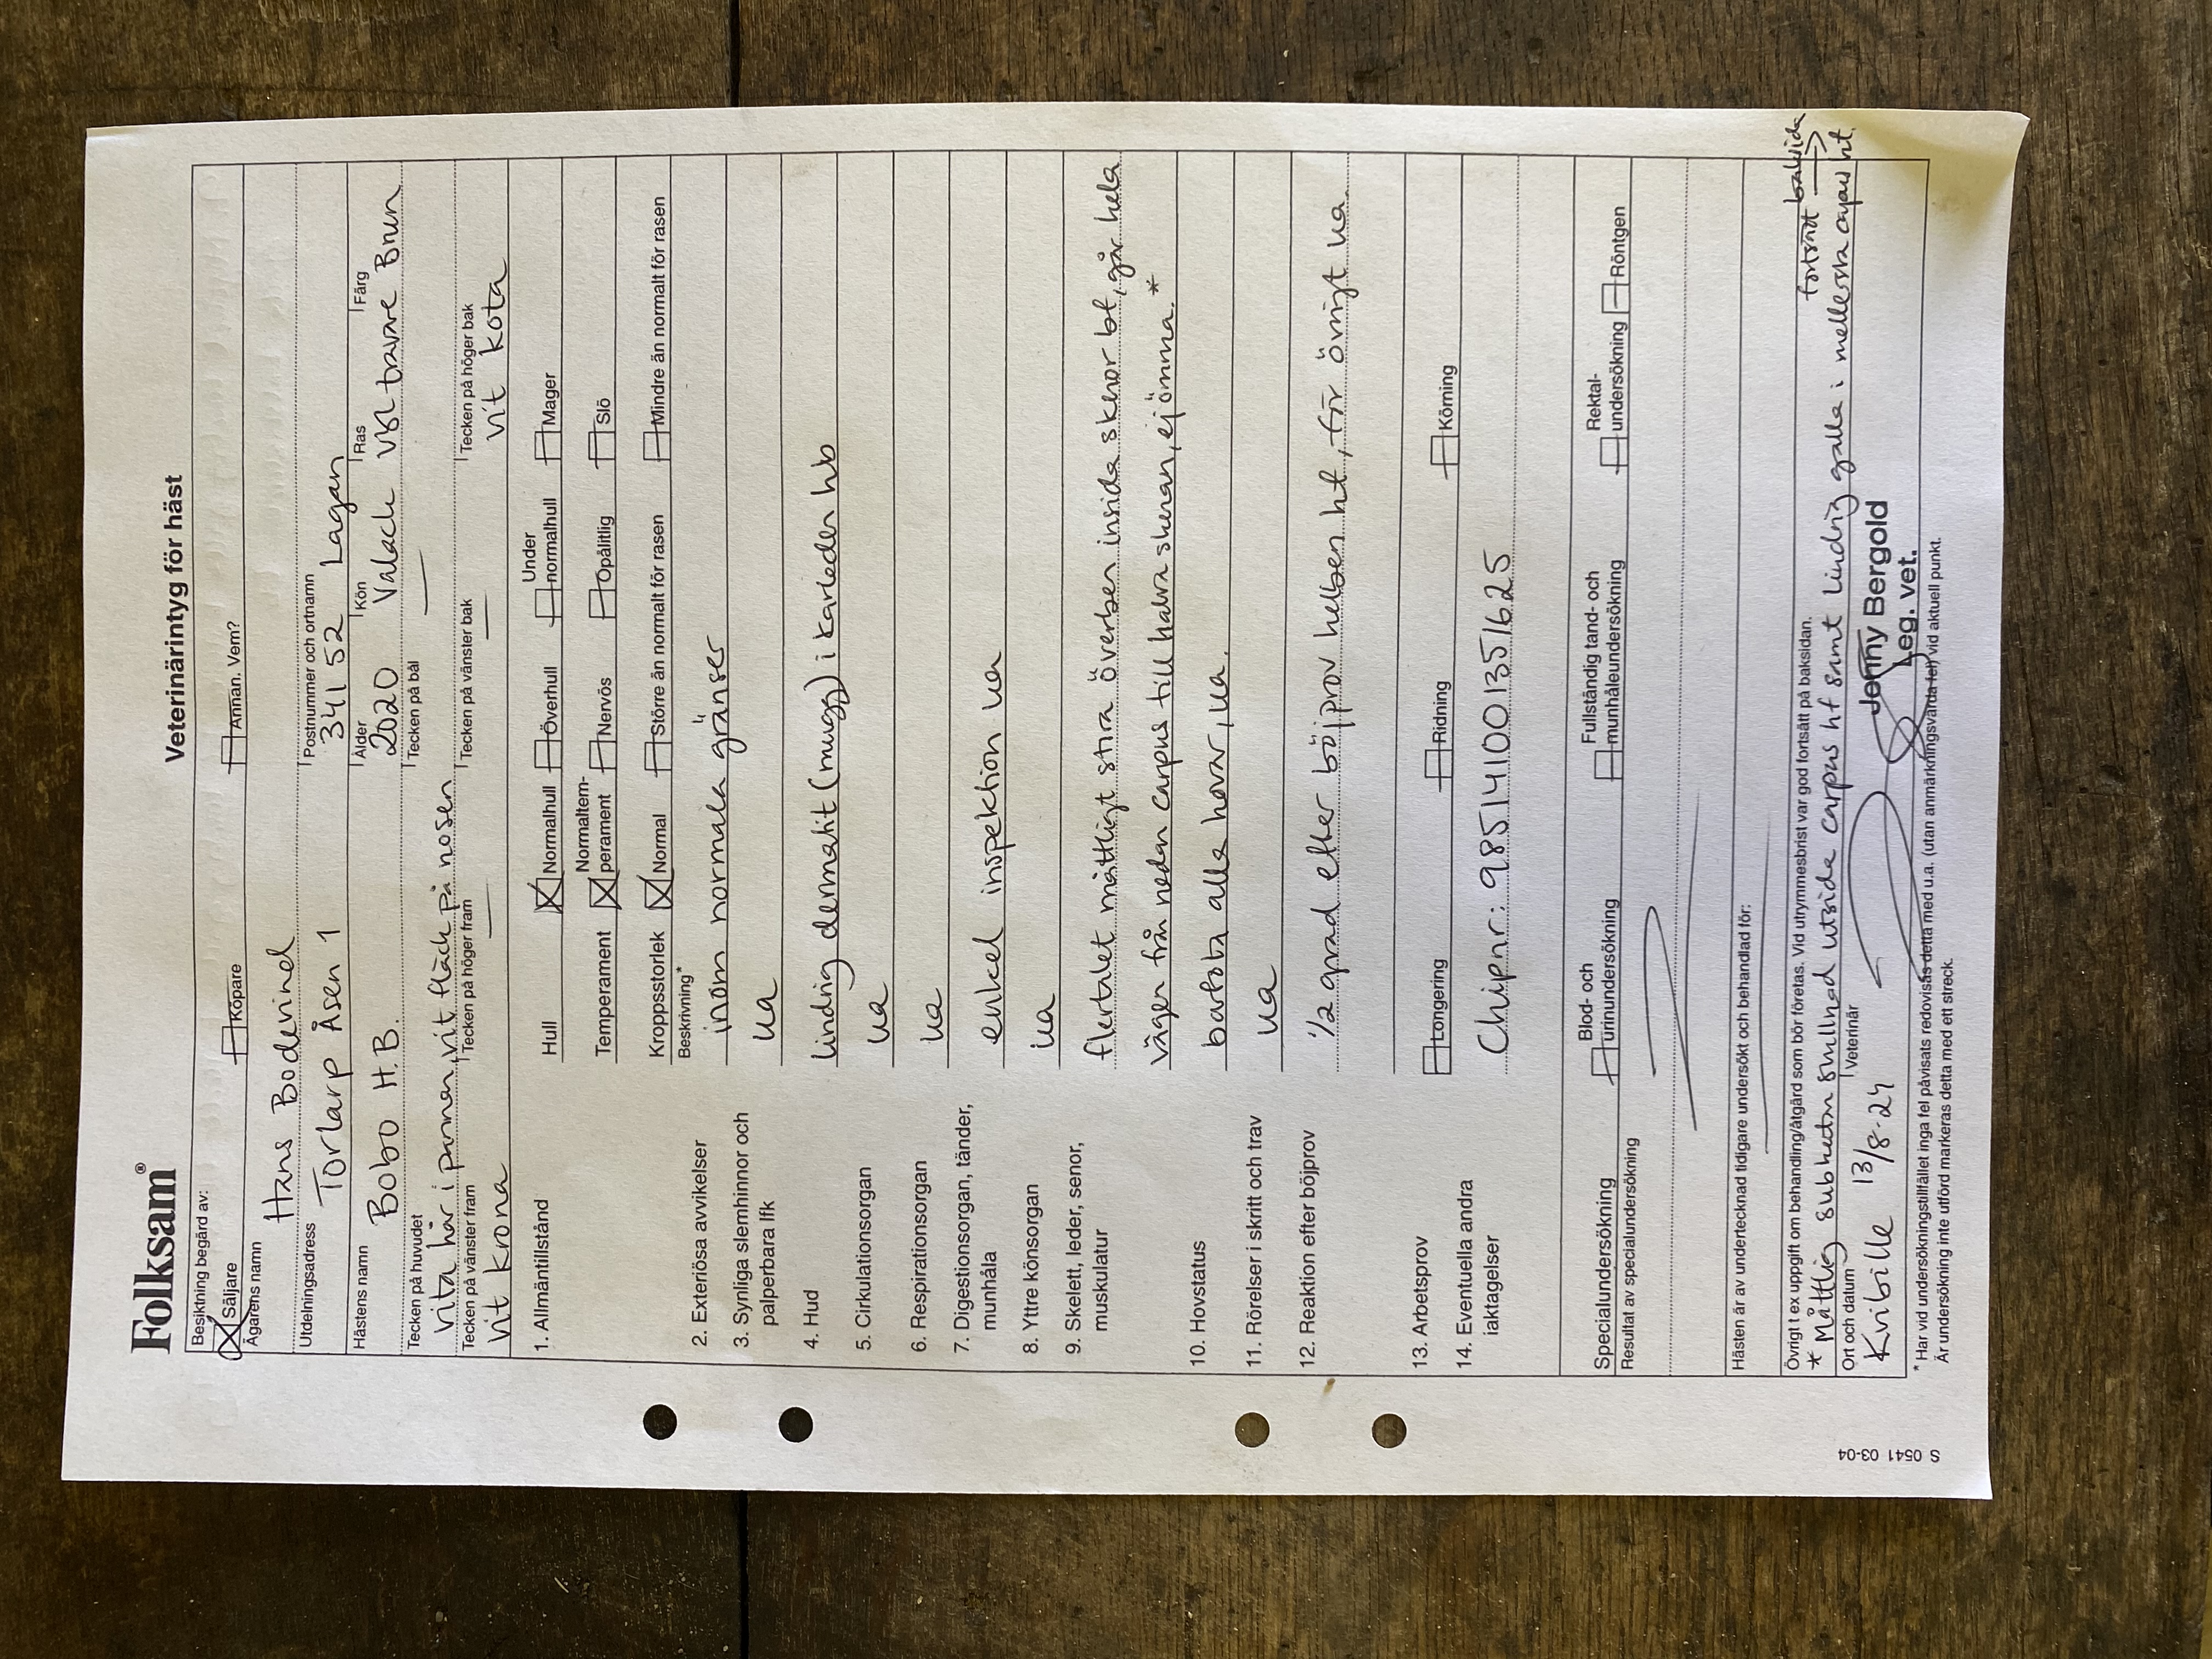 Folksam®
Veterinärintyg för häst
Besiktning begärd av:
Säljare Köpare Annan. Vem?
Ägarens namn
Hans Bodenind
Utdelningsadress Postnummer och ortnamn
Torlarp Åsen 1 341 52 Lagan
Hästens namn Ålder Kön Ras Färg
Bobo H.B. 2020 Valach vbl travare Brun
Tecken på huvudet Tecken på bål
vita hår i pannan, vit fläck på nosen
Tecken på vänster fram Tecken på höger fram Tecken på vänster bak Tecken på höger bak
Vit krona vit kota
1. Allmäntillstånd Hull Normalhull Överhull Under normalhull Mager
Temperament Normaltemperament Nervös Opålitlig Slö
Kroppsstorlek Normal Större än normalt för rasen Mindre än normalt för rasen
Beskrivning*
2. Exteriösa avvikelser inom normala gränser
3. Synliga slemhinnor och ua
palperbara lfk
4. Hud lindrig dermatit (mugg) i karleden hb
5. Cirkulationsorgan ua
6. Respirationsorgan ua
7. Digestionsorgan, tänder, enkel inspektion ua
munhåla
8. Yttre könsorgan ua
9. Skelett, leder, senor, flertalet måttligt stora överben insida skenor bf, går hela
muskulatur vägen från nedan carpus till halva skenan, ej ömma. *
10. Hovstatus barfota alla hovar, ua.
11. Rörelser i skritt och trav ua
12. Reaktion efter böjprov 1/2 grad efter böjprov helben hf, för övrigt ua.
13. Arbetsprov Longering Ridning Körning
14. Eventuella andra Chipnr: 985141001351625
iaktagelser
Specialundersökning Blod- och urinundersökning Fullständig tand- och munhåleundersökning Rektalundersökning Röntgen
Resultat av specialundersökning
Hästen är av undertecknad tidigare undersökt och behandlad för:
Övrigt t ex uppgift om behandling/åtgärd som bör företas. Vid utrymmesbrist var god fortsätt på baksidan. fortsätt baksida
* Måttlig subkutan svullnad utsida carpus hf samt lindrig galla i mellersta hf.
Ort och datum Veterinär
Kvibille 13/8-24 Jenny Bergold
Leg. vet.
* Har vid undersökningstillfället inga fel påvisats redovisas detta med u.a. (utan anmärkningsvärda fel) vid aktuell punkt.
Är undersökning inte utförd markeras detta med ett streck.
S 0541 03-04